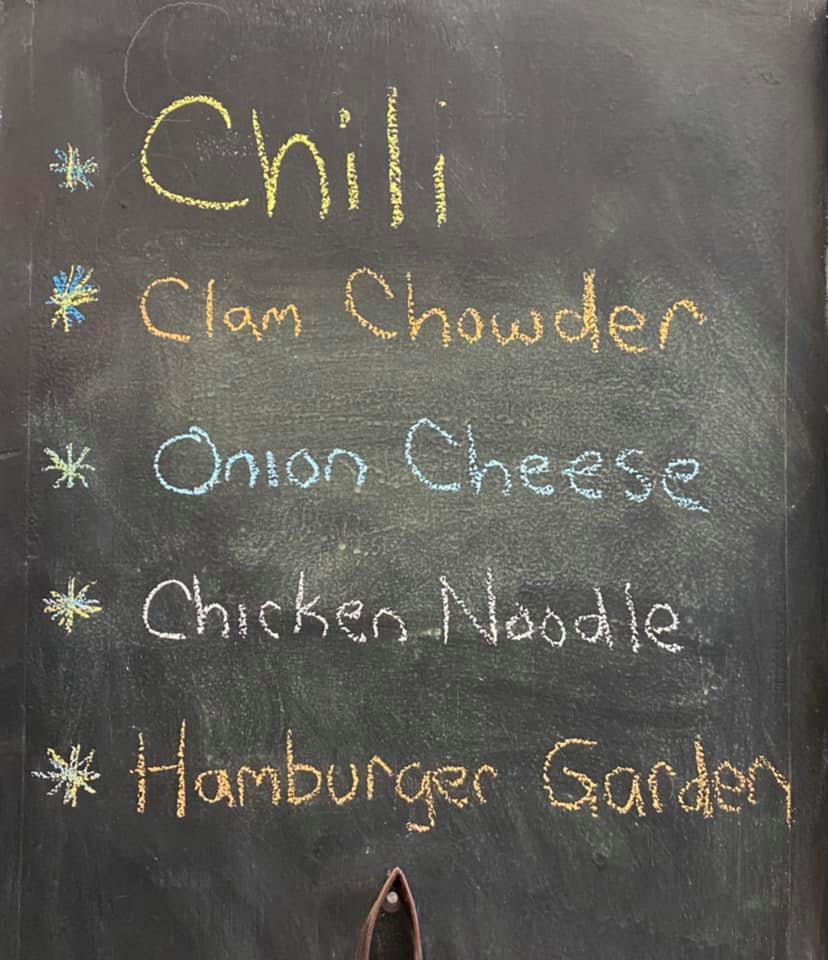 * Chili
* Clam Chowder
* Onion Cheese
* Chicken Noodle
* Hamburger Garden